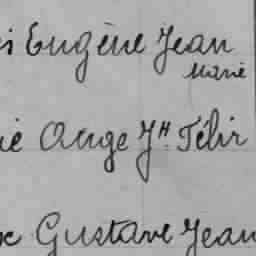 is Eugène Jean
Marie
ie Ange Jh. Félix
x Gustave Jean